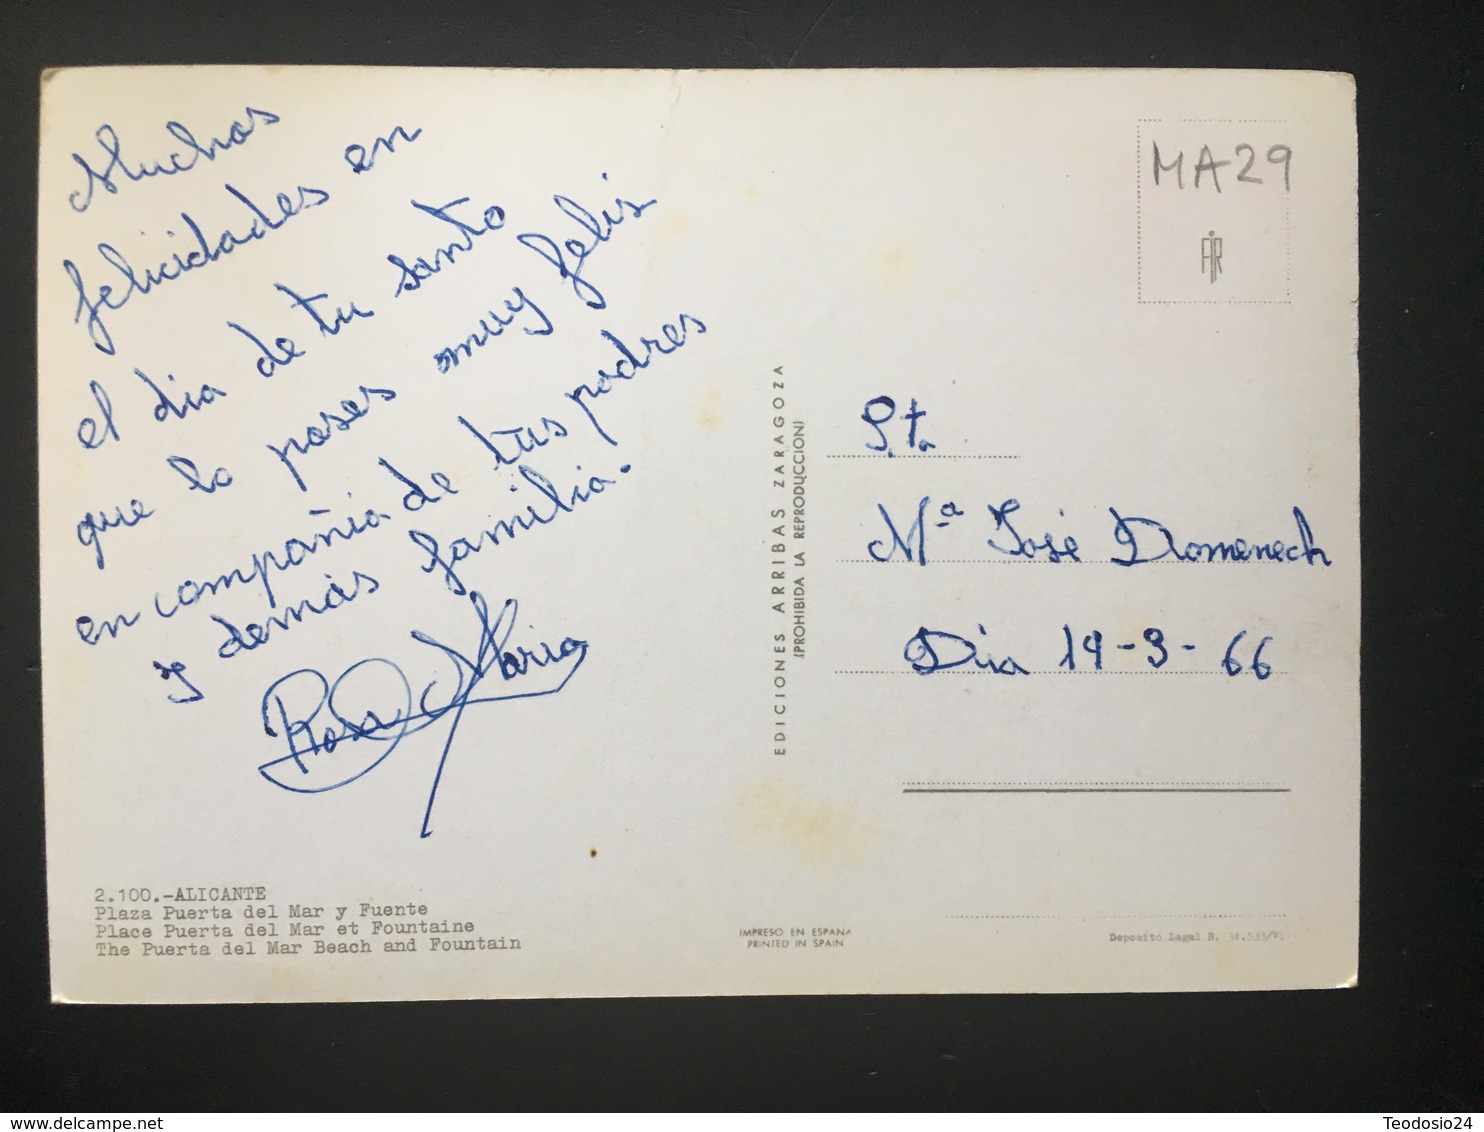 Muchas
felicidades en
el dia de tu santo
que lo pases muy felis
en compañia de tus padres
y demás familia.
Rosa Maria
2.100.-ALICANTE
Plaza Puerta del Mar y Fuente
Place Puerta del Mar et Fountaine
The Puerta del Mar Beach and Fountain
EDICIONES ARRIBAS ZARAGOZA
(PROHIBIDA LA REPRODUCCION)
IMPRESO EN ESPAÑA
PRINTED IN SPAIN
MA29
Sta
Mª José Domenech
Dia 19-3-66
Deposito Legal B.
delcampe.net
Teodosio24